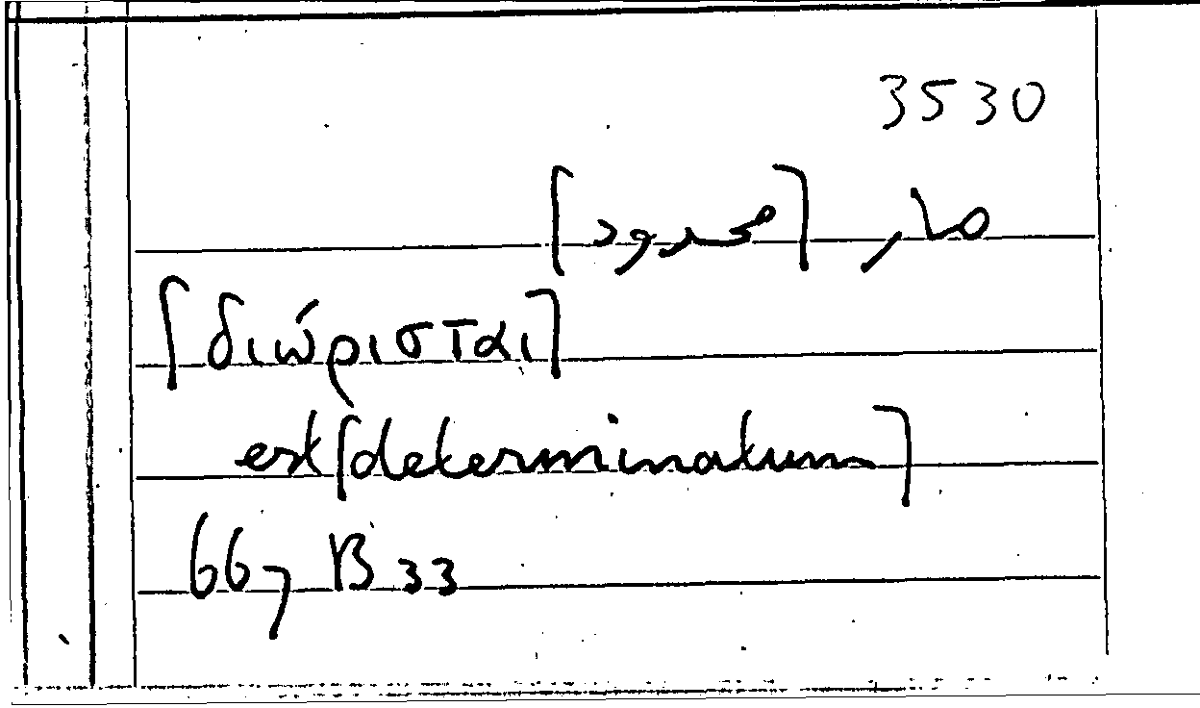 3530
صار [محدود]
[διώρισται]
est [determinatum]
667 B 33